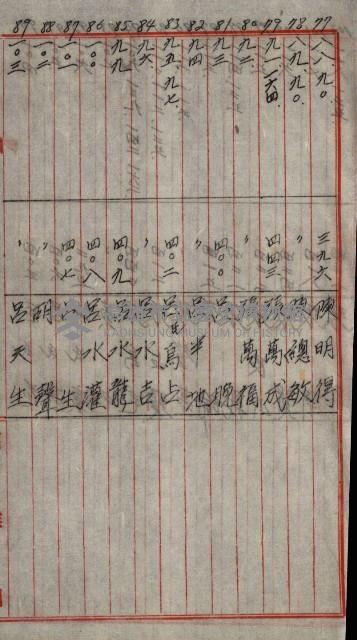 77 八八、九〇、 三九六 陳明得
78 八九、九〇、 〃 陳總敏
79 九一、一六四、 四四三 張萬成
80 九二、 〃 張萬福
81 九三、 四〇〇 呂 晚
82 九四、 〃 呂半地
83 九五、九七、 四〇二 呂氏烏占
84 九六、 〃 呂水吉
85 九九、 四〇九 呂水龍
86 一〇〇、 四〇八 呂水灌
87 一〇一 四〇七 呂 生
88 一〇二 〃 胡 聲
89 一〇三 〃 呂天生